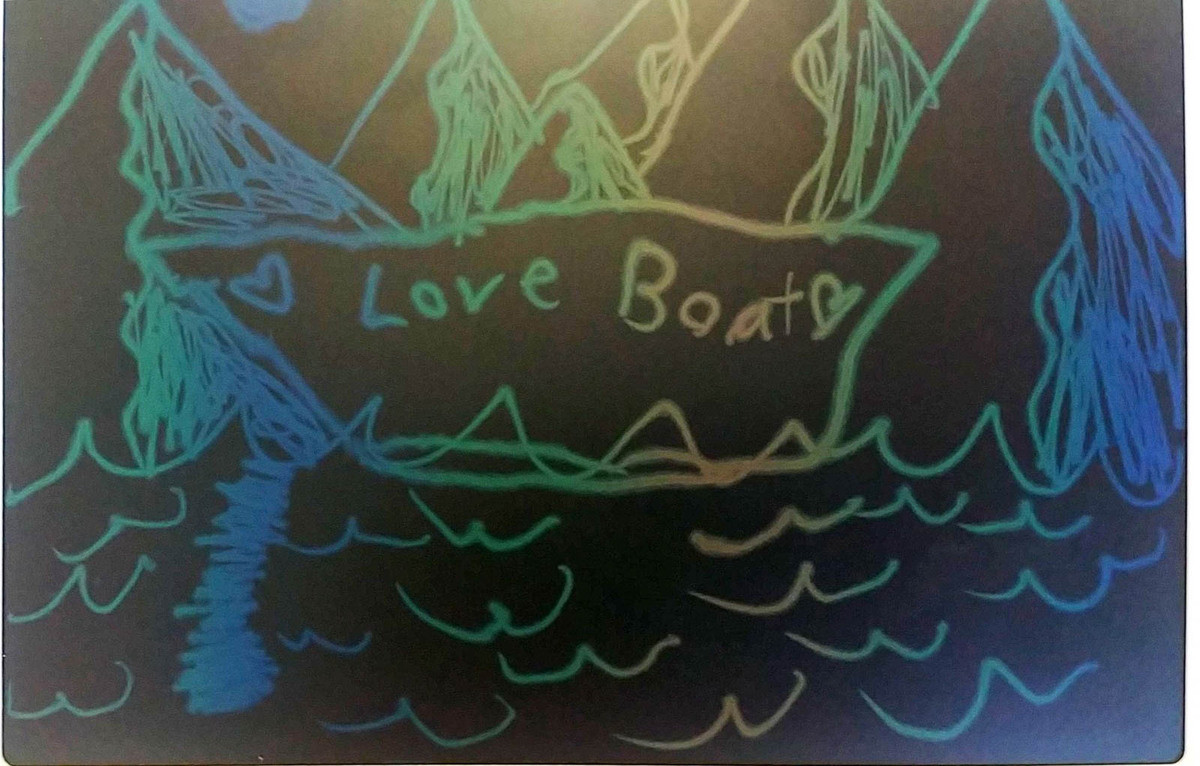 ♡ Love Boat ♡